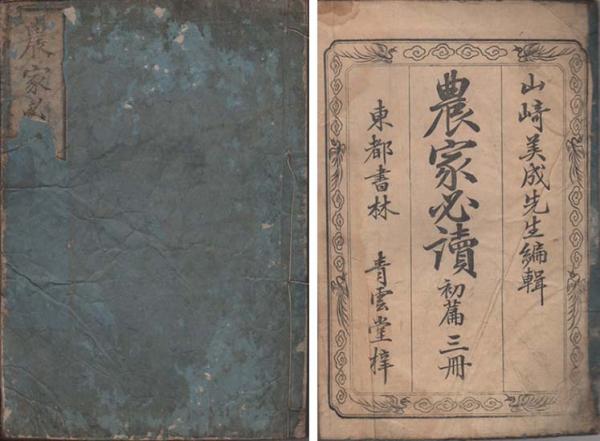 農家必
山崎美成先生編輯
農家必讀 初篇 三冊
東都書林 青雲堂梓